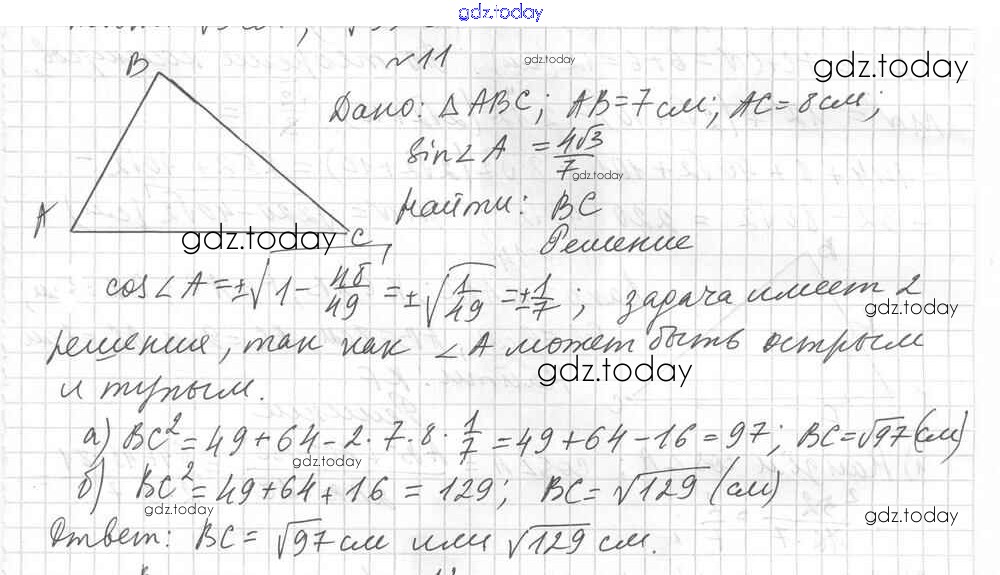 gdz.today
№11
gdz.today
gdz.today
B
Дано: △ABC; AB=7 см; AC=8 см;
sin∠A = 4√3/7
gdz.today
Найти: BC
A
gdz.today
C
Решение
cos∠A = ±√(1 - 48/49) = ±√(1/49) = ±1/7; задача имеет 2
gdz.today
решения, так как ∠A может быть острым
gdz.today
и тупым.
а) BC² = 49+64-2·7·8·1/7 = 49+64-16 = 97; BC=√97 (см)
gdz.today
б) BC² = 49+64+16 = 129; BC = √129 (см)
gdz.today
gdz.today
Ответ: BC = √97 см или √129 см.